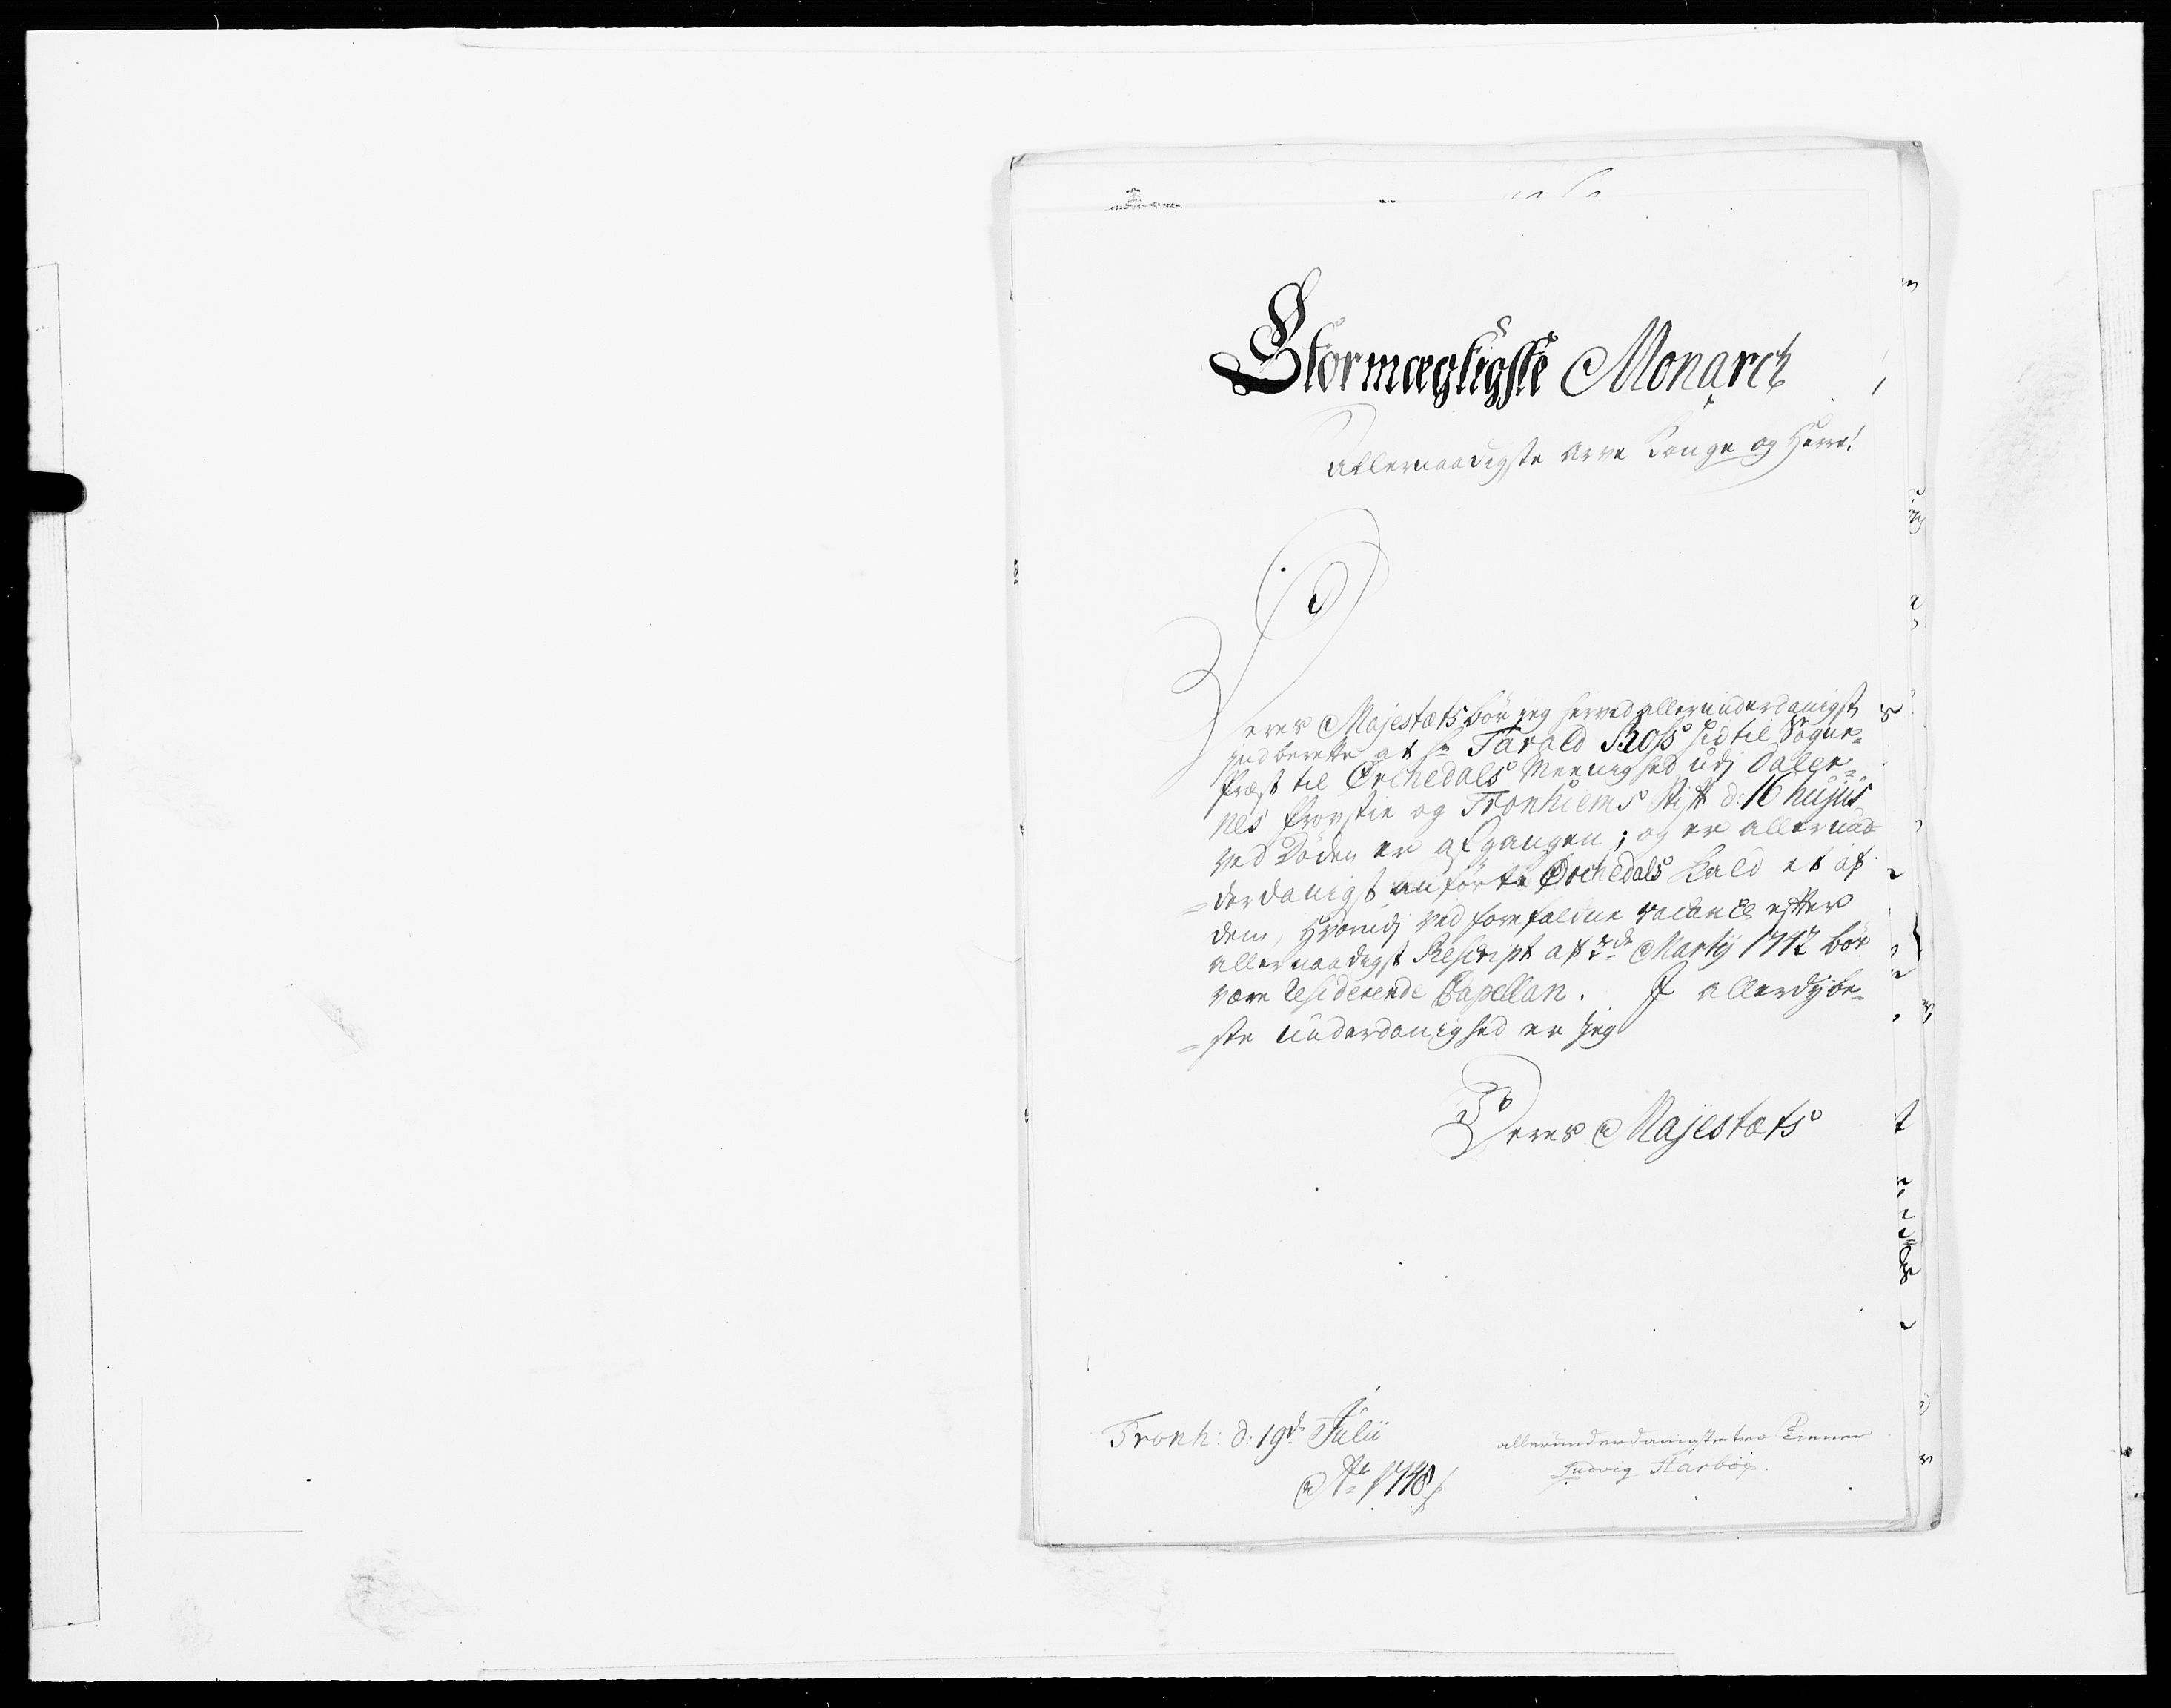 Stormægtigste Monarch
Allernaadigste Arve Konge og Herre!
Deres Majestæts bør jeg herved allerunderdanigst
indberette at Hr Tarald Ross hidtil Sogne-
Præst til Ørchedals Meenighed udj Daler-
nes Provstie og Tronhiems Stift d: 16 hujus
ved Døden er afgangen; og er allerun-
=derdanigst anførte Ørchedals Kald et af
dem, hvorudj ved forefaldne vacance efter
allernaadigst Rescript af 2de Martij 1742 bør
være Residerende Capellan. I allerdybe-
=ste underdanighed er jeg
Deres Majestæts
Tronh: d: 19de Julii
Ao 1748
allerunderdanigste troe Tiener
Ludvig Harboe.